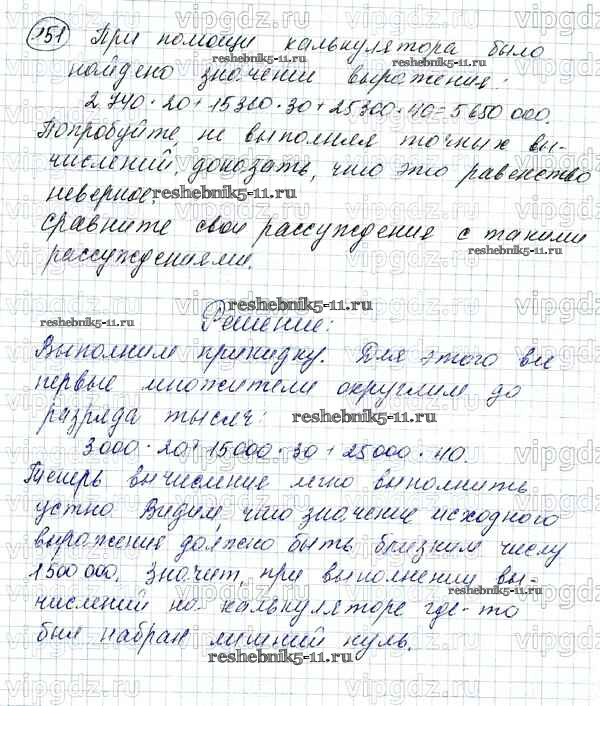 151 При помощи калькулятора было
найдено значении выражения:
2 740 · 20 + 15 300 · 30 + 25 300 · 40 = 5 650 000.
Попробуйте не выполняя точных вы-
числений, доказать, что это равенство
неверное.
Сравните свои рассуждения с такими
рассуждениями.
Решение:
Выполним прикидку. Для этого все
первые множители округлим до
разряда тысяч:
3000 · 20 + 15000 · 30 + 25000 · 40.
Теперь вычисление легко выполнить
устно Видим, что значение исходного
выражение должно быть близким числу
1500 000. Значит, при выполнении вы-
числений на калькуляторе где-то
был набран лишний нуль.
vipgdz.ru
reshebnik5-11.ru